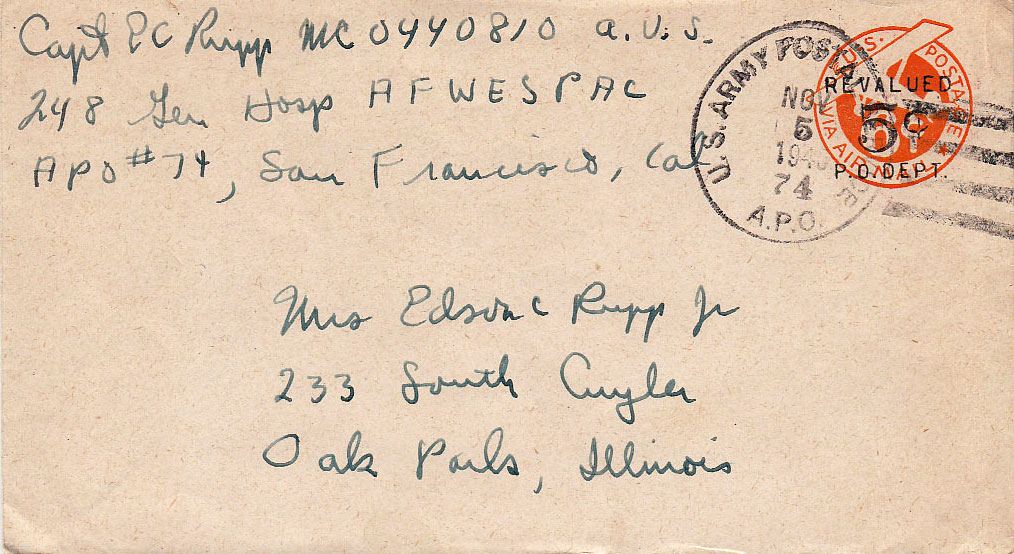 Capt E C Rupp MC 0440810 A.U.S.
248 Gen Hosp AFWESPAC
APO #74, San Francisco, Cal
U.S. ARMY POSTAL
NOV
5
194
74
A.P.O.
U.S. POSTAGE
VIA AIR MAIL
REVALUED
5¢
P.O. DEPT.
Mrs Edson C Rupp Jr
233 South Cuyler
Oak Park, Illinois